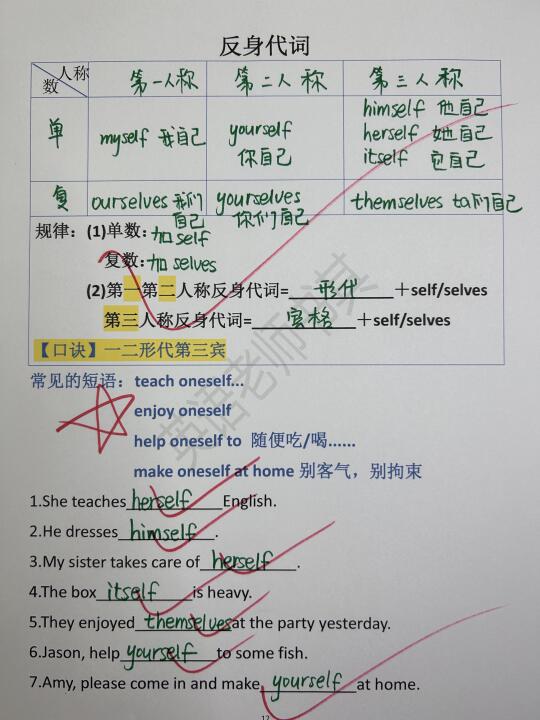 反身代词
人称 第一人称 第二人称 第三人称
数
himself 他自己
单 myself 我自己 yourself herself 她自己
你自己 itself 它自己
复 ourselves 我们自己 yourselves 你们自己 themselves ta们自己
规律：(1)单数：加self
复数：加selves
(2)第一第二人称反身代词=形代＋self/selves
第三人称反身代词=宾格＋self/selves
【口诀】一二形代第三宾
常见的短语：teach oneself...
enjoy oneself
help oneself to 随便吃/喝......
make oneself at home 别客气，别拘束
1.She teaches herself English.
2.He dresses himself.
3.My sister takes care of herself.
4.The box itself is heavy.
5.They enjoyed themselves at the party yesterday.
6.Jason, help yourself to some fish.
7.Amy, please come in and make yourself at home.
12